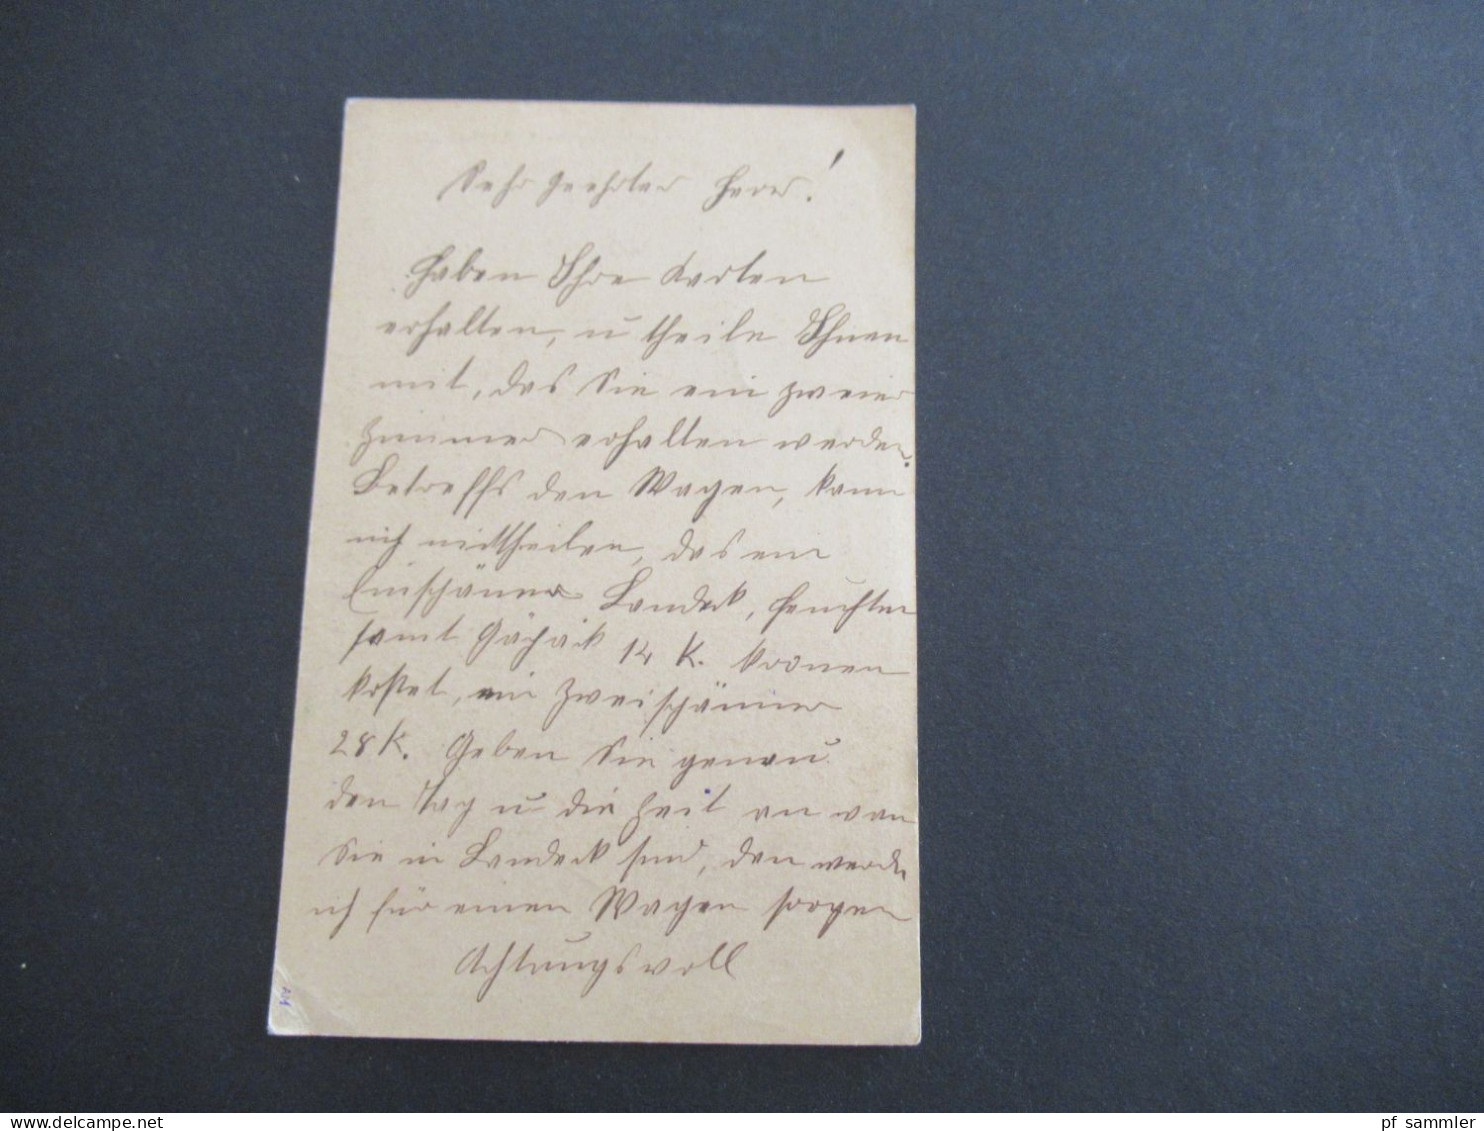 Sehr geehrter Herr!
Haben Ihre Karten
erhalten, u theile Ihnen
mit, das Sie ein zweier
Zimmer erhalten werden.
Betreffs den Wagen, kann
ich mittheilen, das ein
Einspänner Landeck, Feuchten
samt Gäpäck 14 K. Kronen
kostet, ein Zweispänner
28 K. Geben Sie genau
den Tag u die Zeit an wan
Sie in Landeck sind, den werde
ich für einen Wagen sorgen
Achtungsvoll
pf sammler